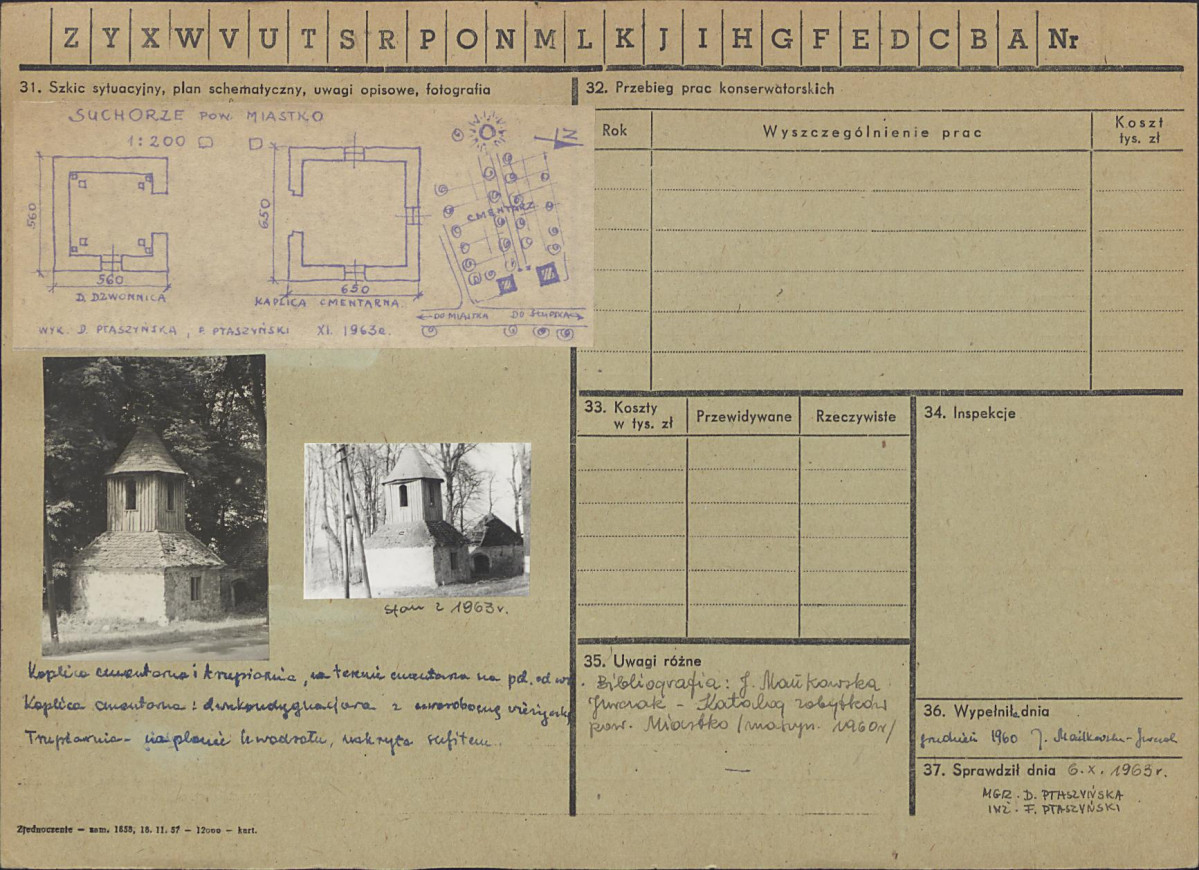 Z Y X W V U T S R P O N M L K J I H G F E D C B A Nr
31. Szkic sytuacyjny, plan schematyczny, uwagi opisowe, fotografia
SUCHORZE POW. MIASTKO
1:200
N
560
560
D. DZWONNICA
650
650
KAPLICA CMENTARNA.
CMENTARZ
DO MIASTKA DO SŁUPSKA
WYK. D. PTASZYŃSKA, F. PTASZYŃSKI XI. 1963r.
stan z 1963r.
Kaplica cmentarna i trupiarnia, na terenie cmentarza na płd. od wsi
Kaplica cmentarna : dwukondygnacjowa z czworoboczną wieżyczką
Trupiarnia - na planie kwadratu, nakryta sufitem.
Zjednoczenie — zam. 1658, 18. 11. 57 — 12000 — kart.
32. Przebieg prac konserwatorskich
Rok
Wyszczególnienie prac
Koszt
tys. zł
33. Koszty
w tys. zł
Przewidywane
Rzeczywiste
34. Inspekcje
35. Uwagi różne
Bibliografia: J. Mańkowska
Jurczak - Katalog zabytków
pow. Miastko /maszyn. 1960r/
36. Wypełnił dnia
grudzień 1960 J. Mańkowska-Jurczak
37. Sprawdził dnia 6.X.1963r.
MGR. D. PTASZYŃSKA
INŻ. F. PTASZYŃSKI